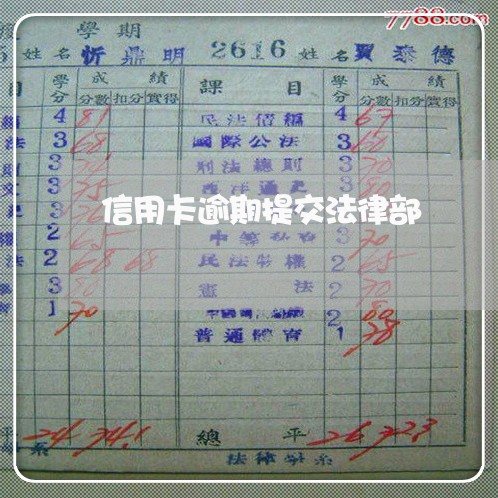 7788.com
學期
5 姓名 忻鼎明 2616 姓名 賈泰德
目 學分 成績 課目 學分 成績
分數 扣分 實得 分數 扣分 實得
4 81 民法債編 4 67
法 3 68 國際公法 3 60
3 刑法總則 3 70
3 75 西洋通史 3 80
信用卡逾期提交法律部
2 65 3 70
法 2 68 68 民法物權 2 65
3 80 憲法 2 70
1 70 2 80
普通體育 1 78
平 24 74.1 總平 26 72.3
系 法律學系